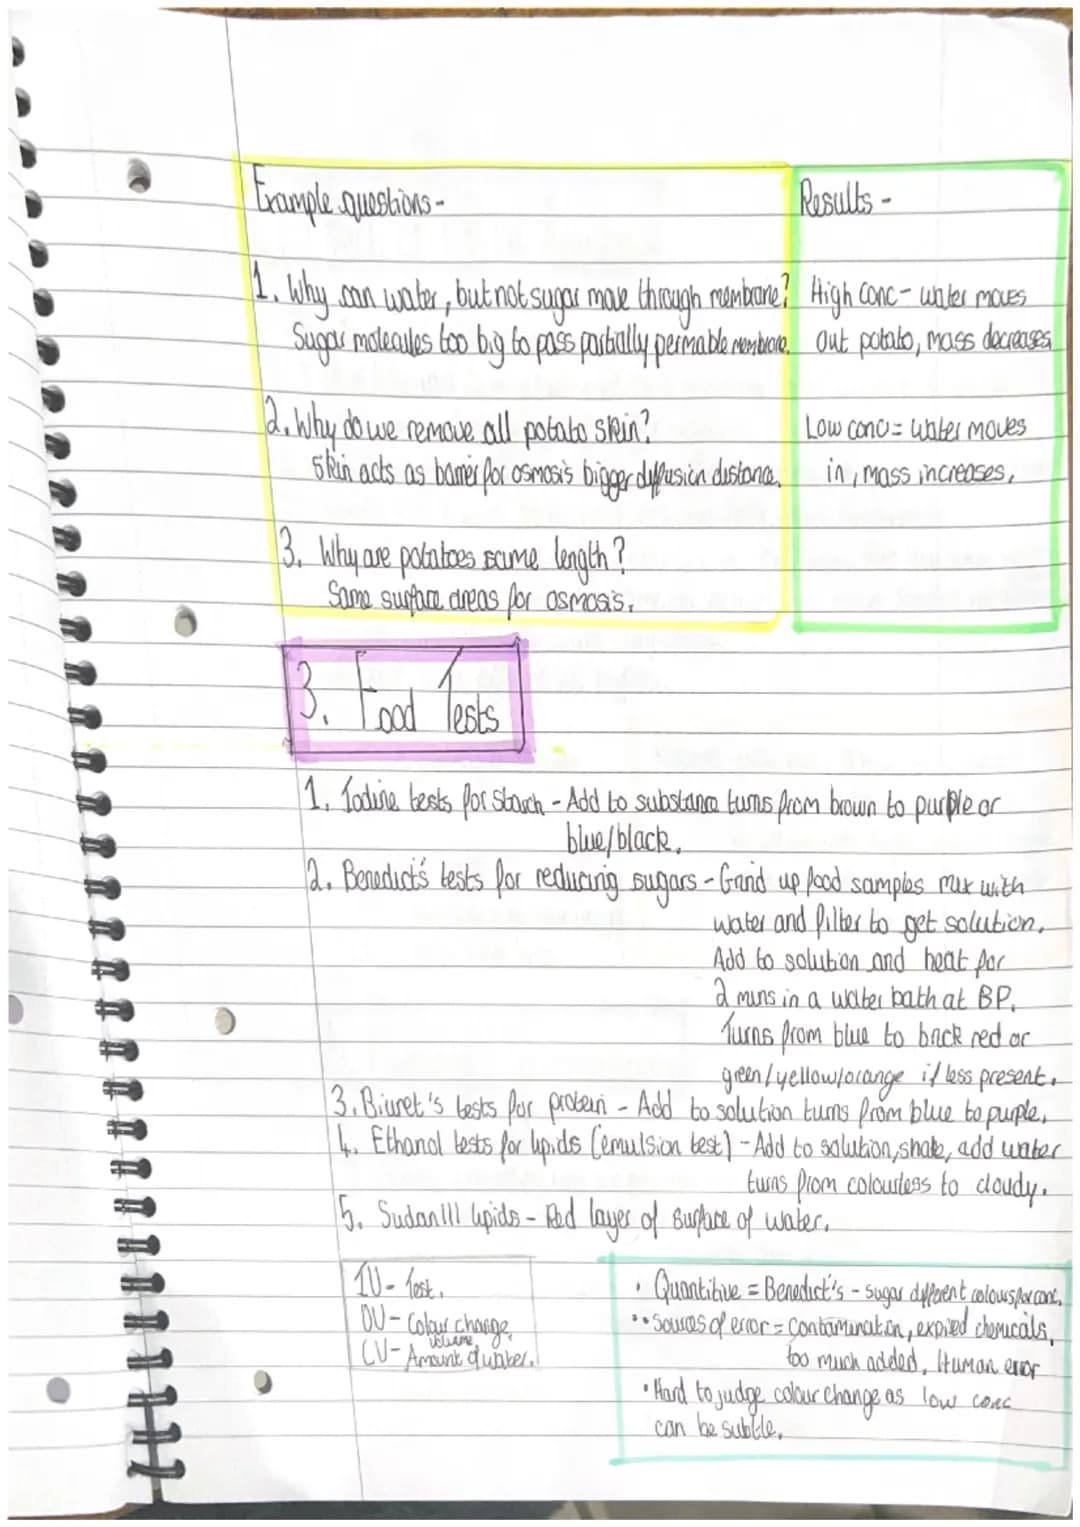 Example questions -
1. Why can water, but not sugar move through membrane?
Sugar molecules too big to pass partially permable membrane.
2. Why do we remove all potato skin?
Skin acts as barrier for osmosis bigger diffusion distance.
3. Why are potatoes same length?
Same surface areas for osmosis.
Results -
High conc - water moves
out potato, mass decreases
Low conc = water moves
in, mass increases.
3. Food Tests
1. Iodine tests for starch - Add to substance turns from brown to purple or
blue/black.
2. Benedict's tests for reducing sugars - Grind up food samples mix with
water and filter to get solution.
Add to solution and heat for
2 mins in a water bath at BP.
Turns from blue to brick red or
green/yellow/orange if less present.
3. Biuret's tests for protein - Add to solution turns from blue to purple.
4. Ethanol tests for lipids (emulsion test) - Add to solution, shake, add water
turns from colourless to cloudy.
5. Sudan III lipids - Red layer of surface of water.
IV - Test.
DV - Colour change.
CV - Amount volume of water.
• Quantitive = Benedict's - sugar different colours for conc.
•• Sources of error = Contamination, expired chemicals,
too much added. Human error
• Hard to judge colour change as low conc
can be subtle.